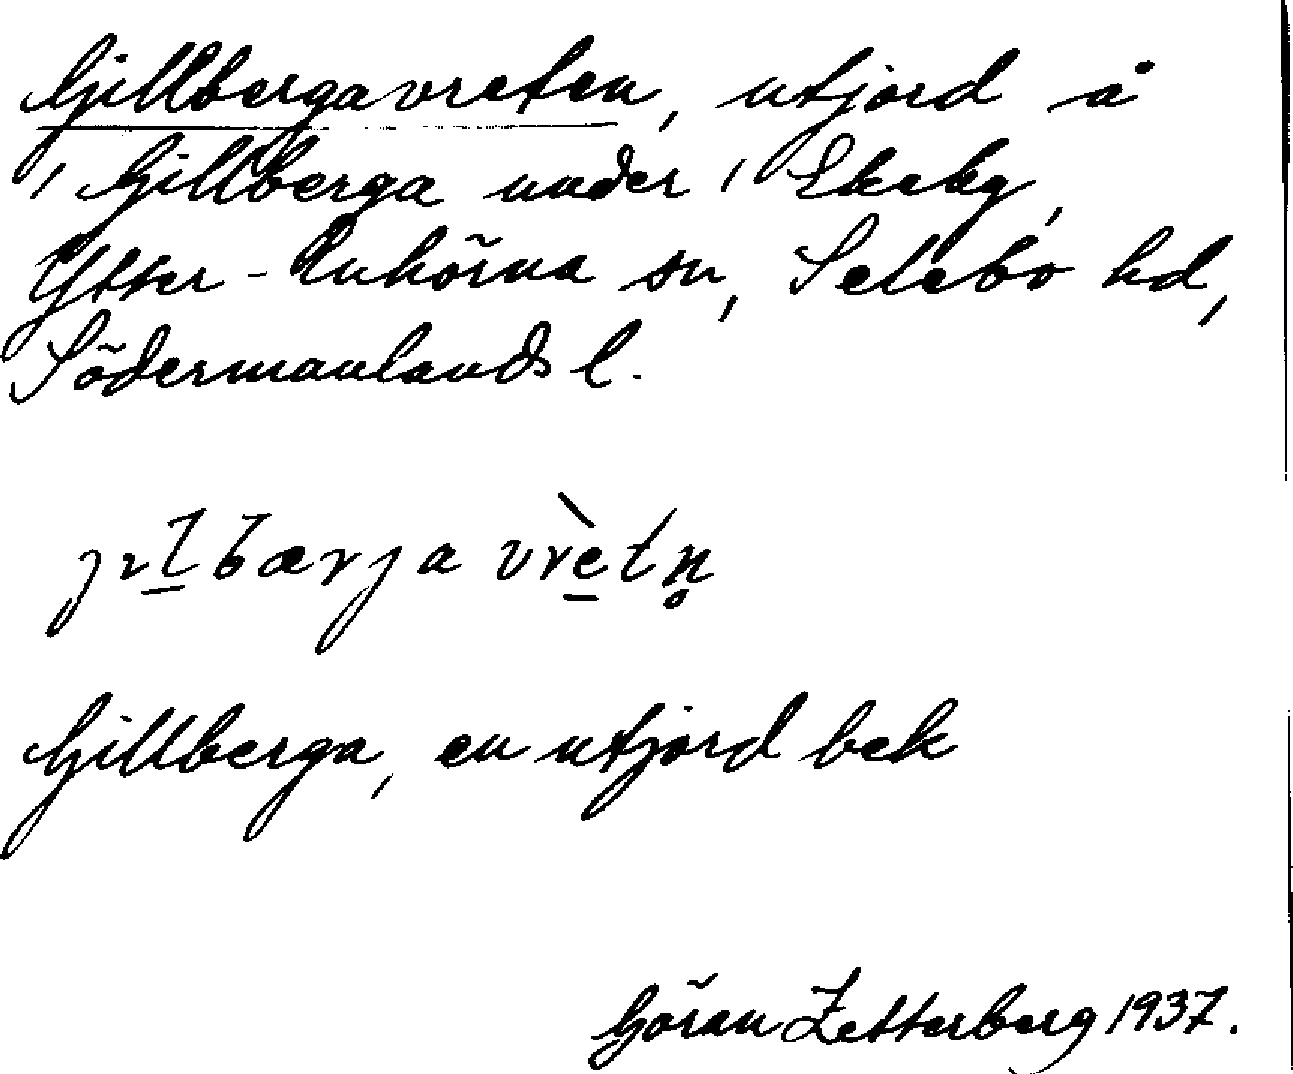 Gillbergavreten, utjord å
/ Gillberga under / Ekeby,
Ytter-Enhörna sn, Selebo hd,
Södermanlands l.
jɩlbærja vrètn̥
Gillberga, en utjord bek
Göran Zetterberg 1937.